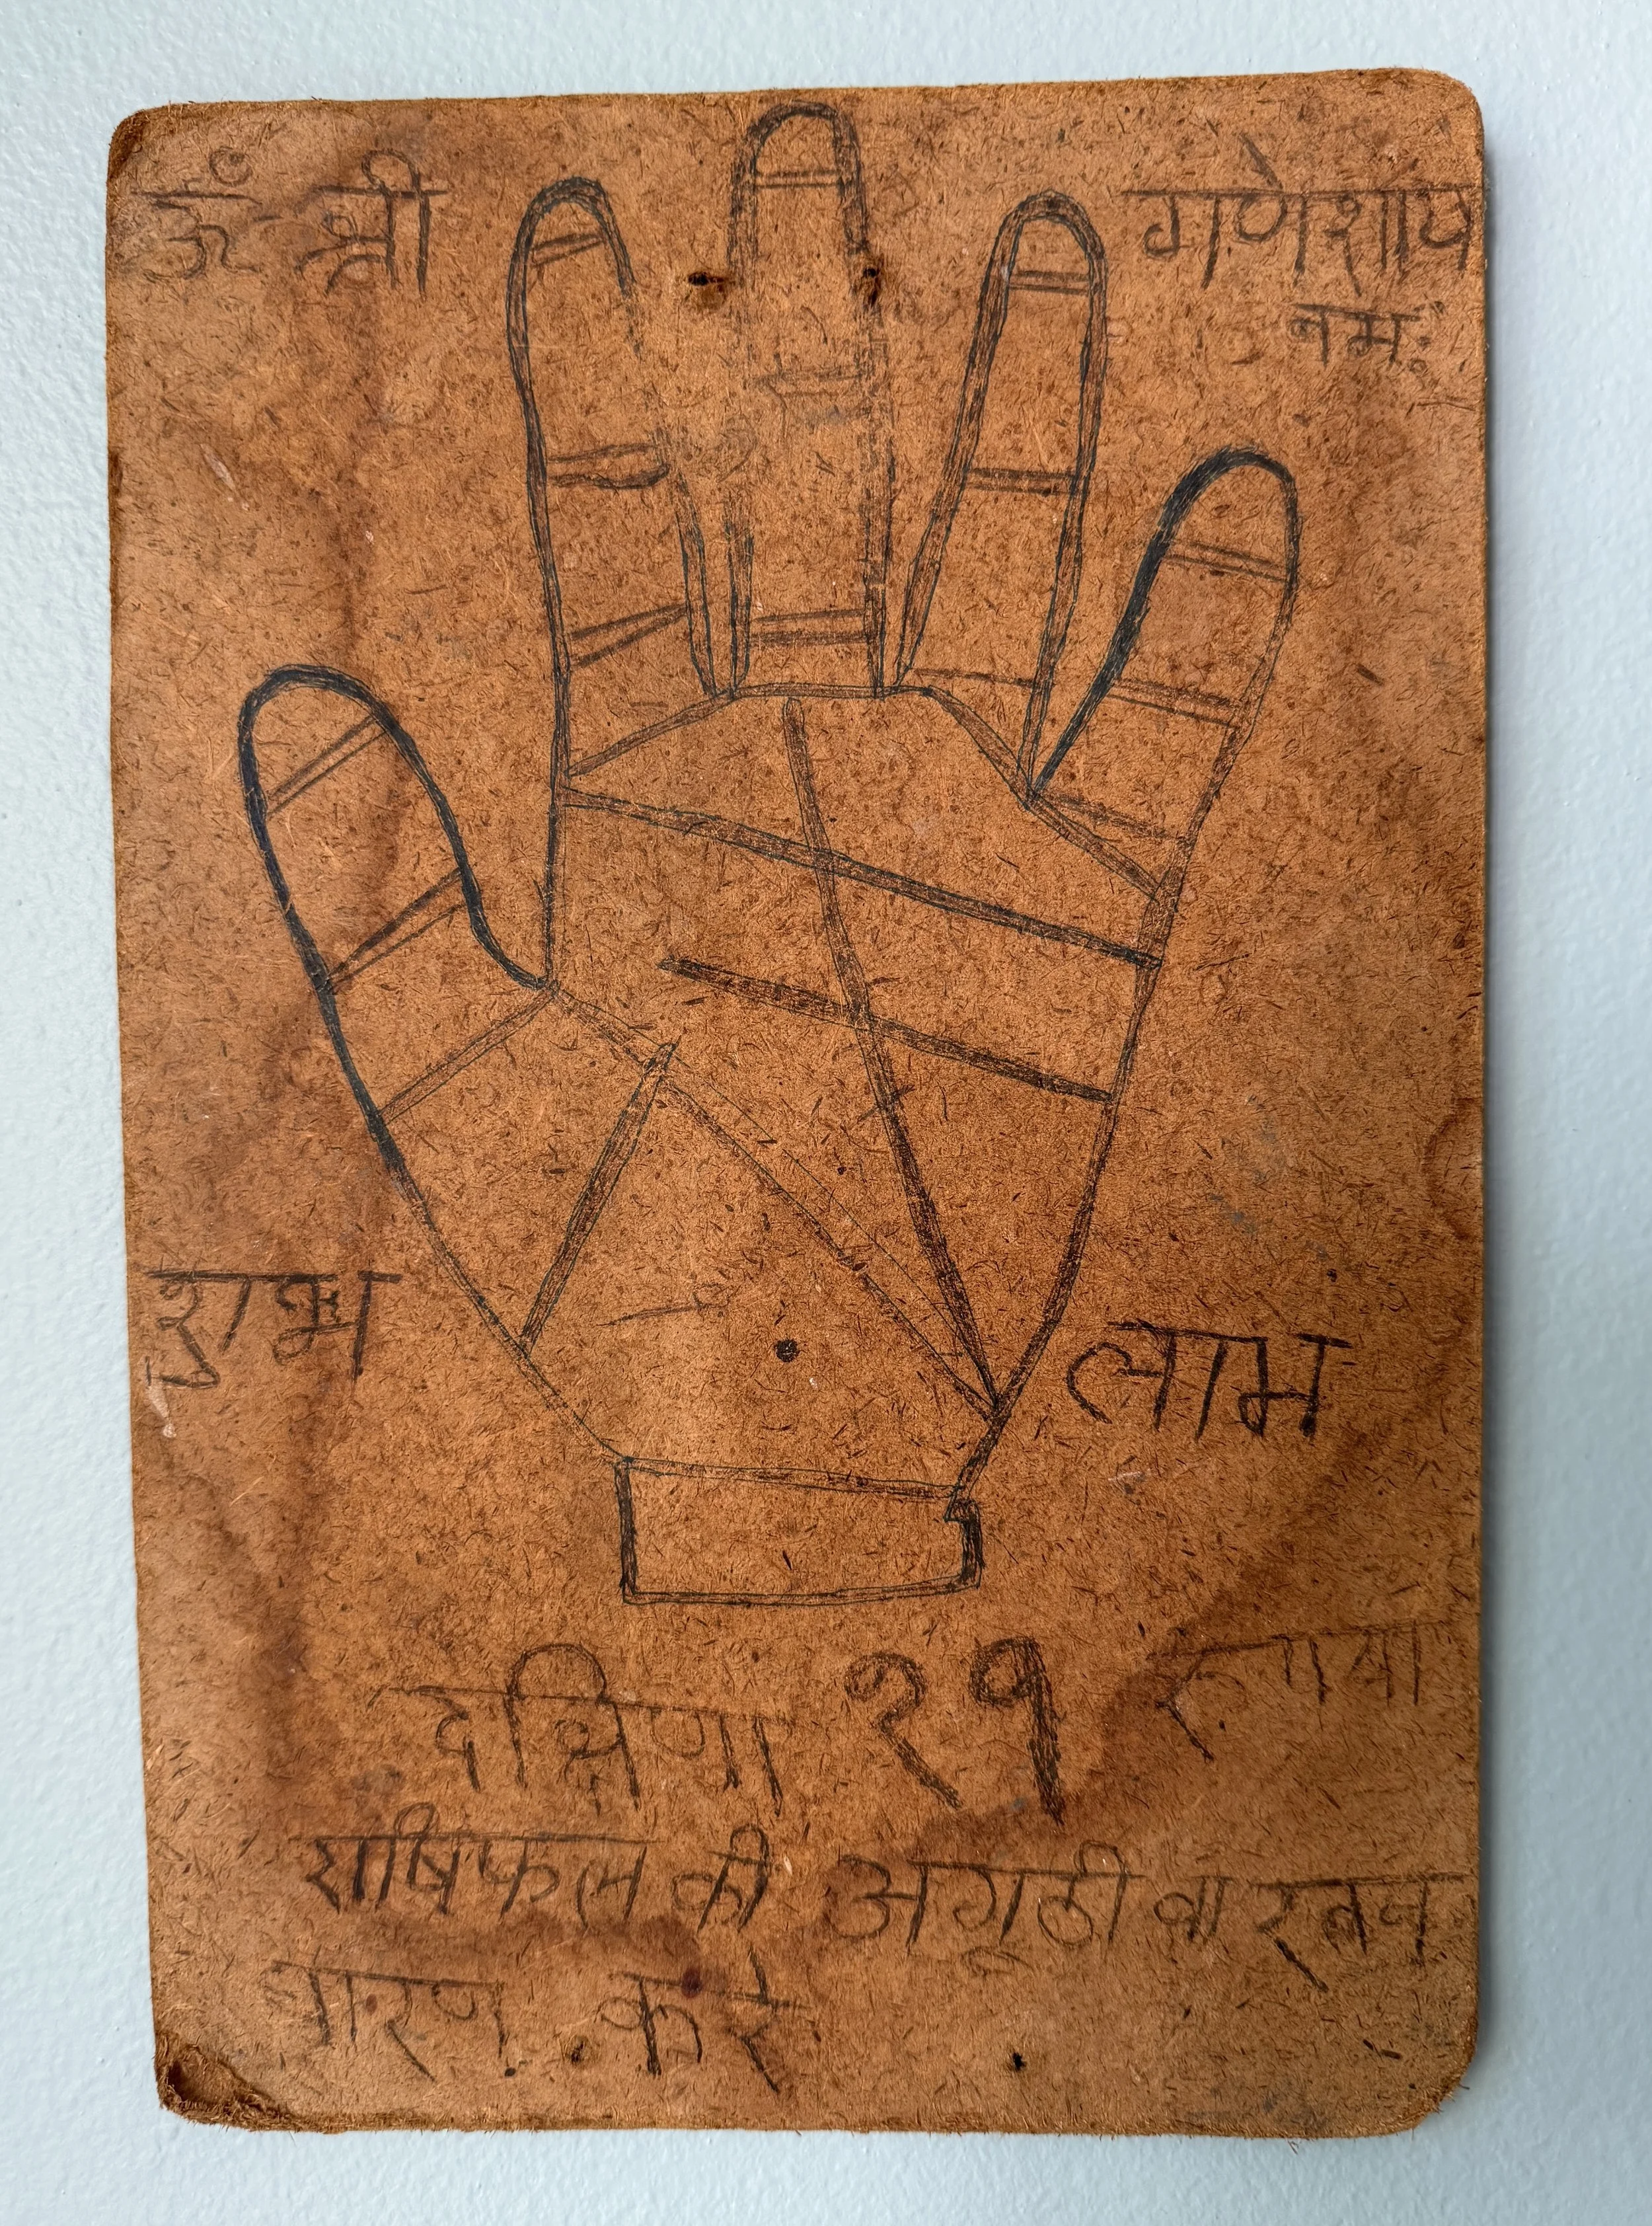 ॐ श्री गणेशाय
नमः
शुभ लाभ
दक्षिणा २१ रुपया
राषिफल की अगूठी वा रत्न
धारण करे